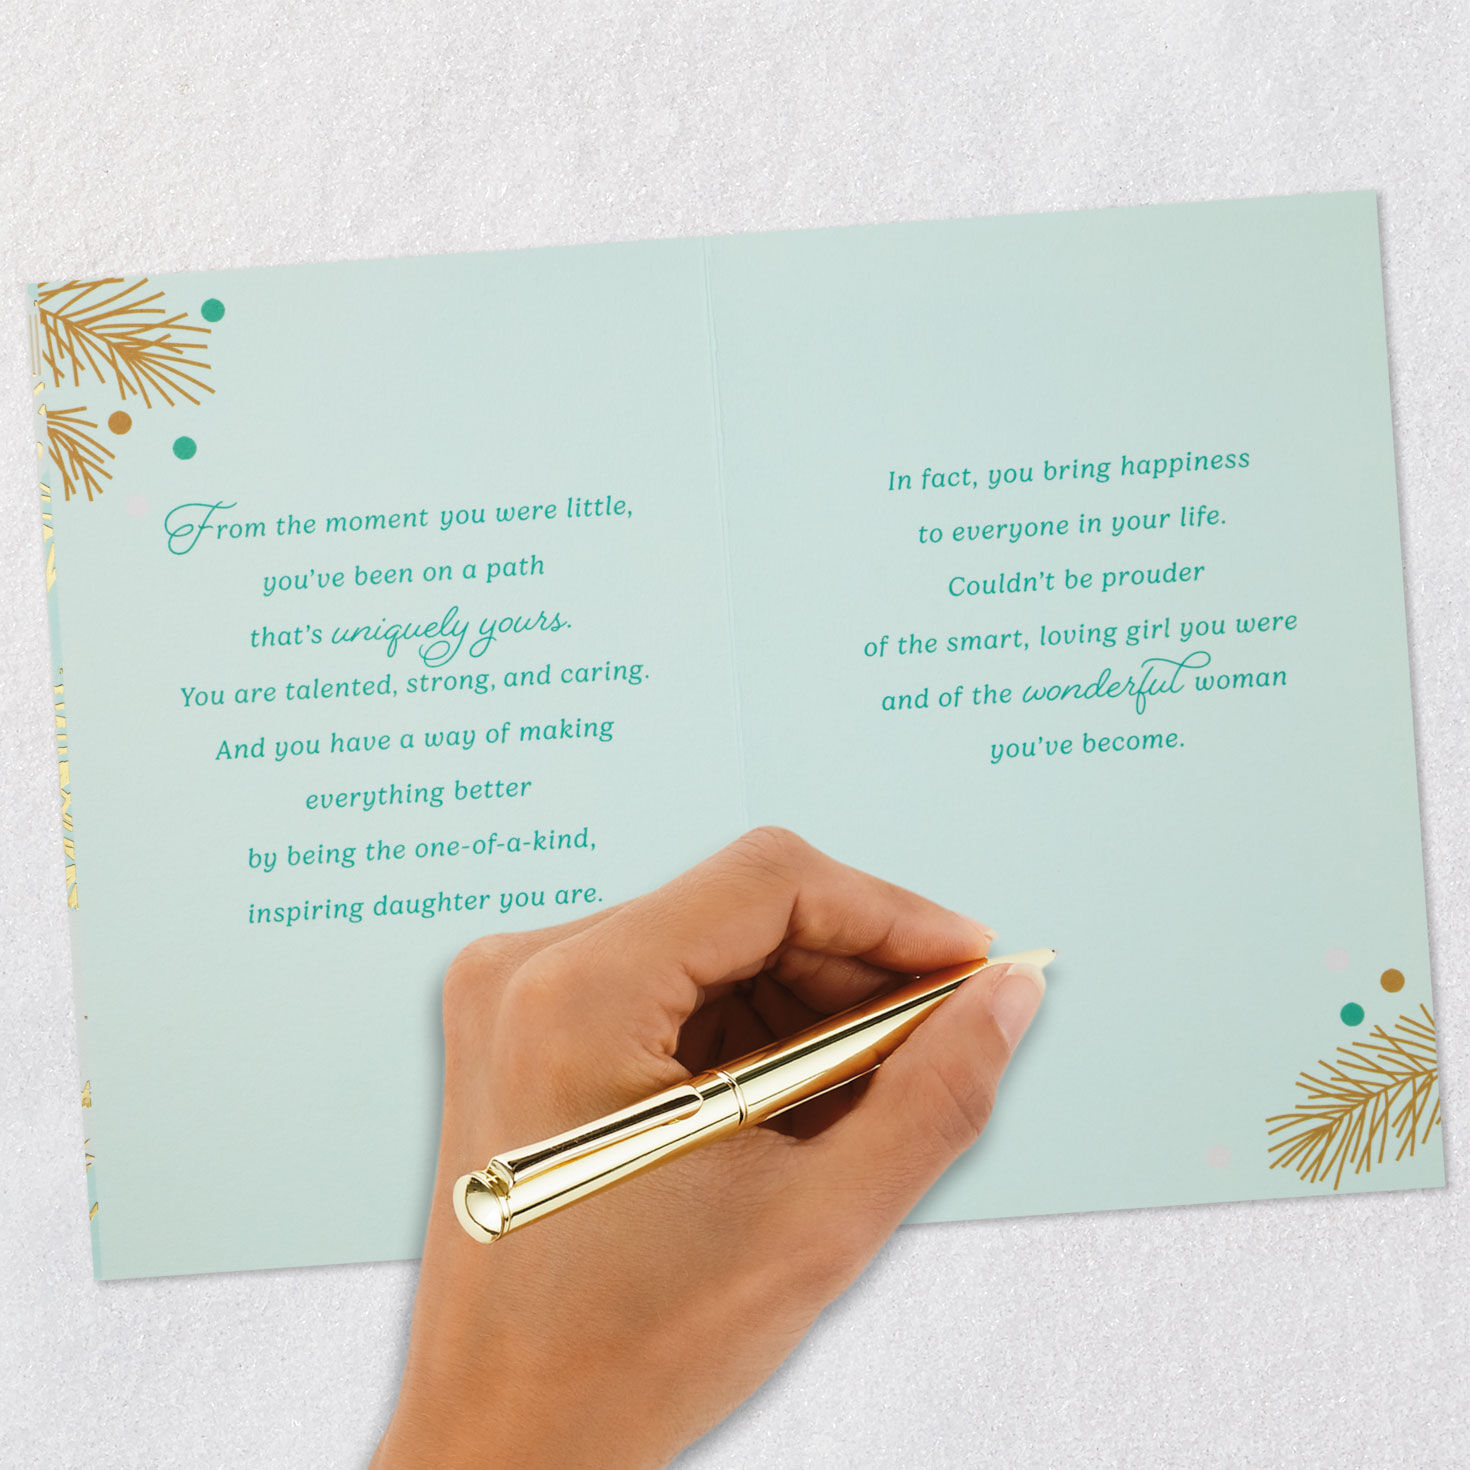 From the moment you were little,
you've been on a path
that's uniquely yours.
You are talented, strong, and caring.
And you have a way of making
everything better
by being the one-of-a-kind,
inspiring daughter you are.
In fact, you bring happiness
to everyone in your life.
Couldn't be prouder
of the smart, loving girl you were
and of the wonderful woman
you've become.